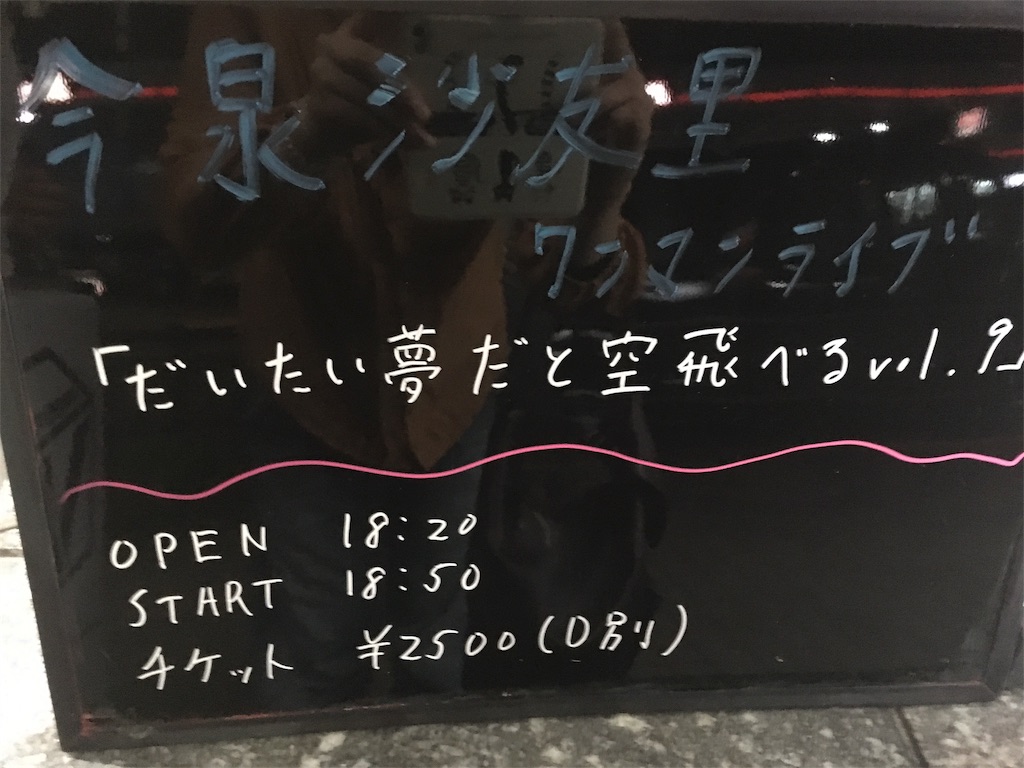 今泉沙友里
ワンマンライブ
「だいたい夢だと空飛べるvol.9」
OPEN 18:20
START 18:50
チケット ¥2500(D別)